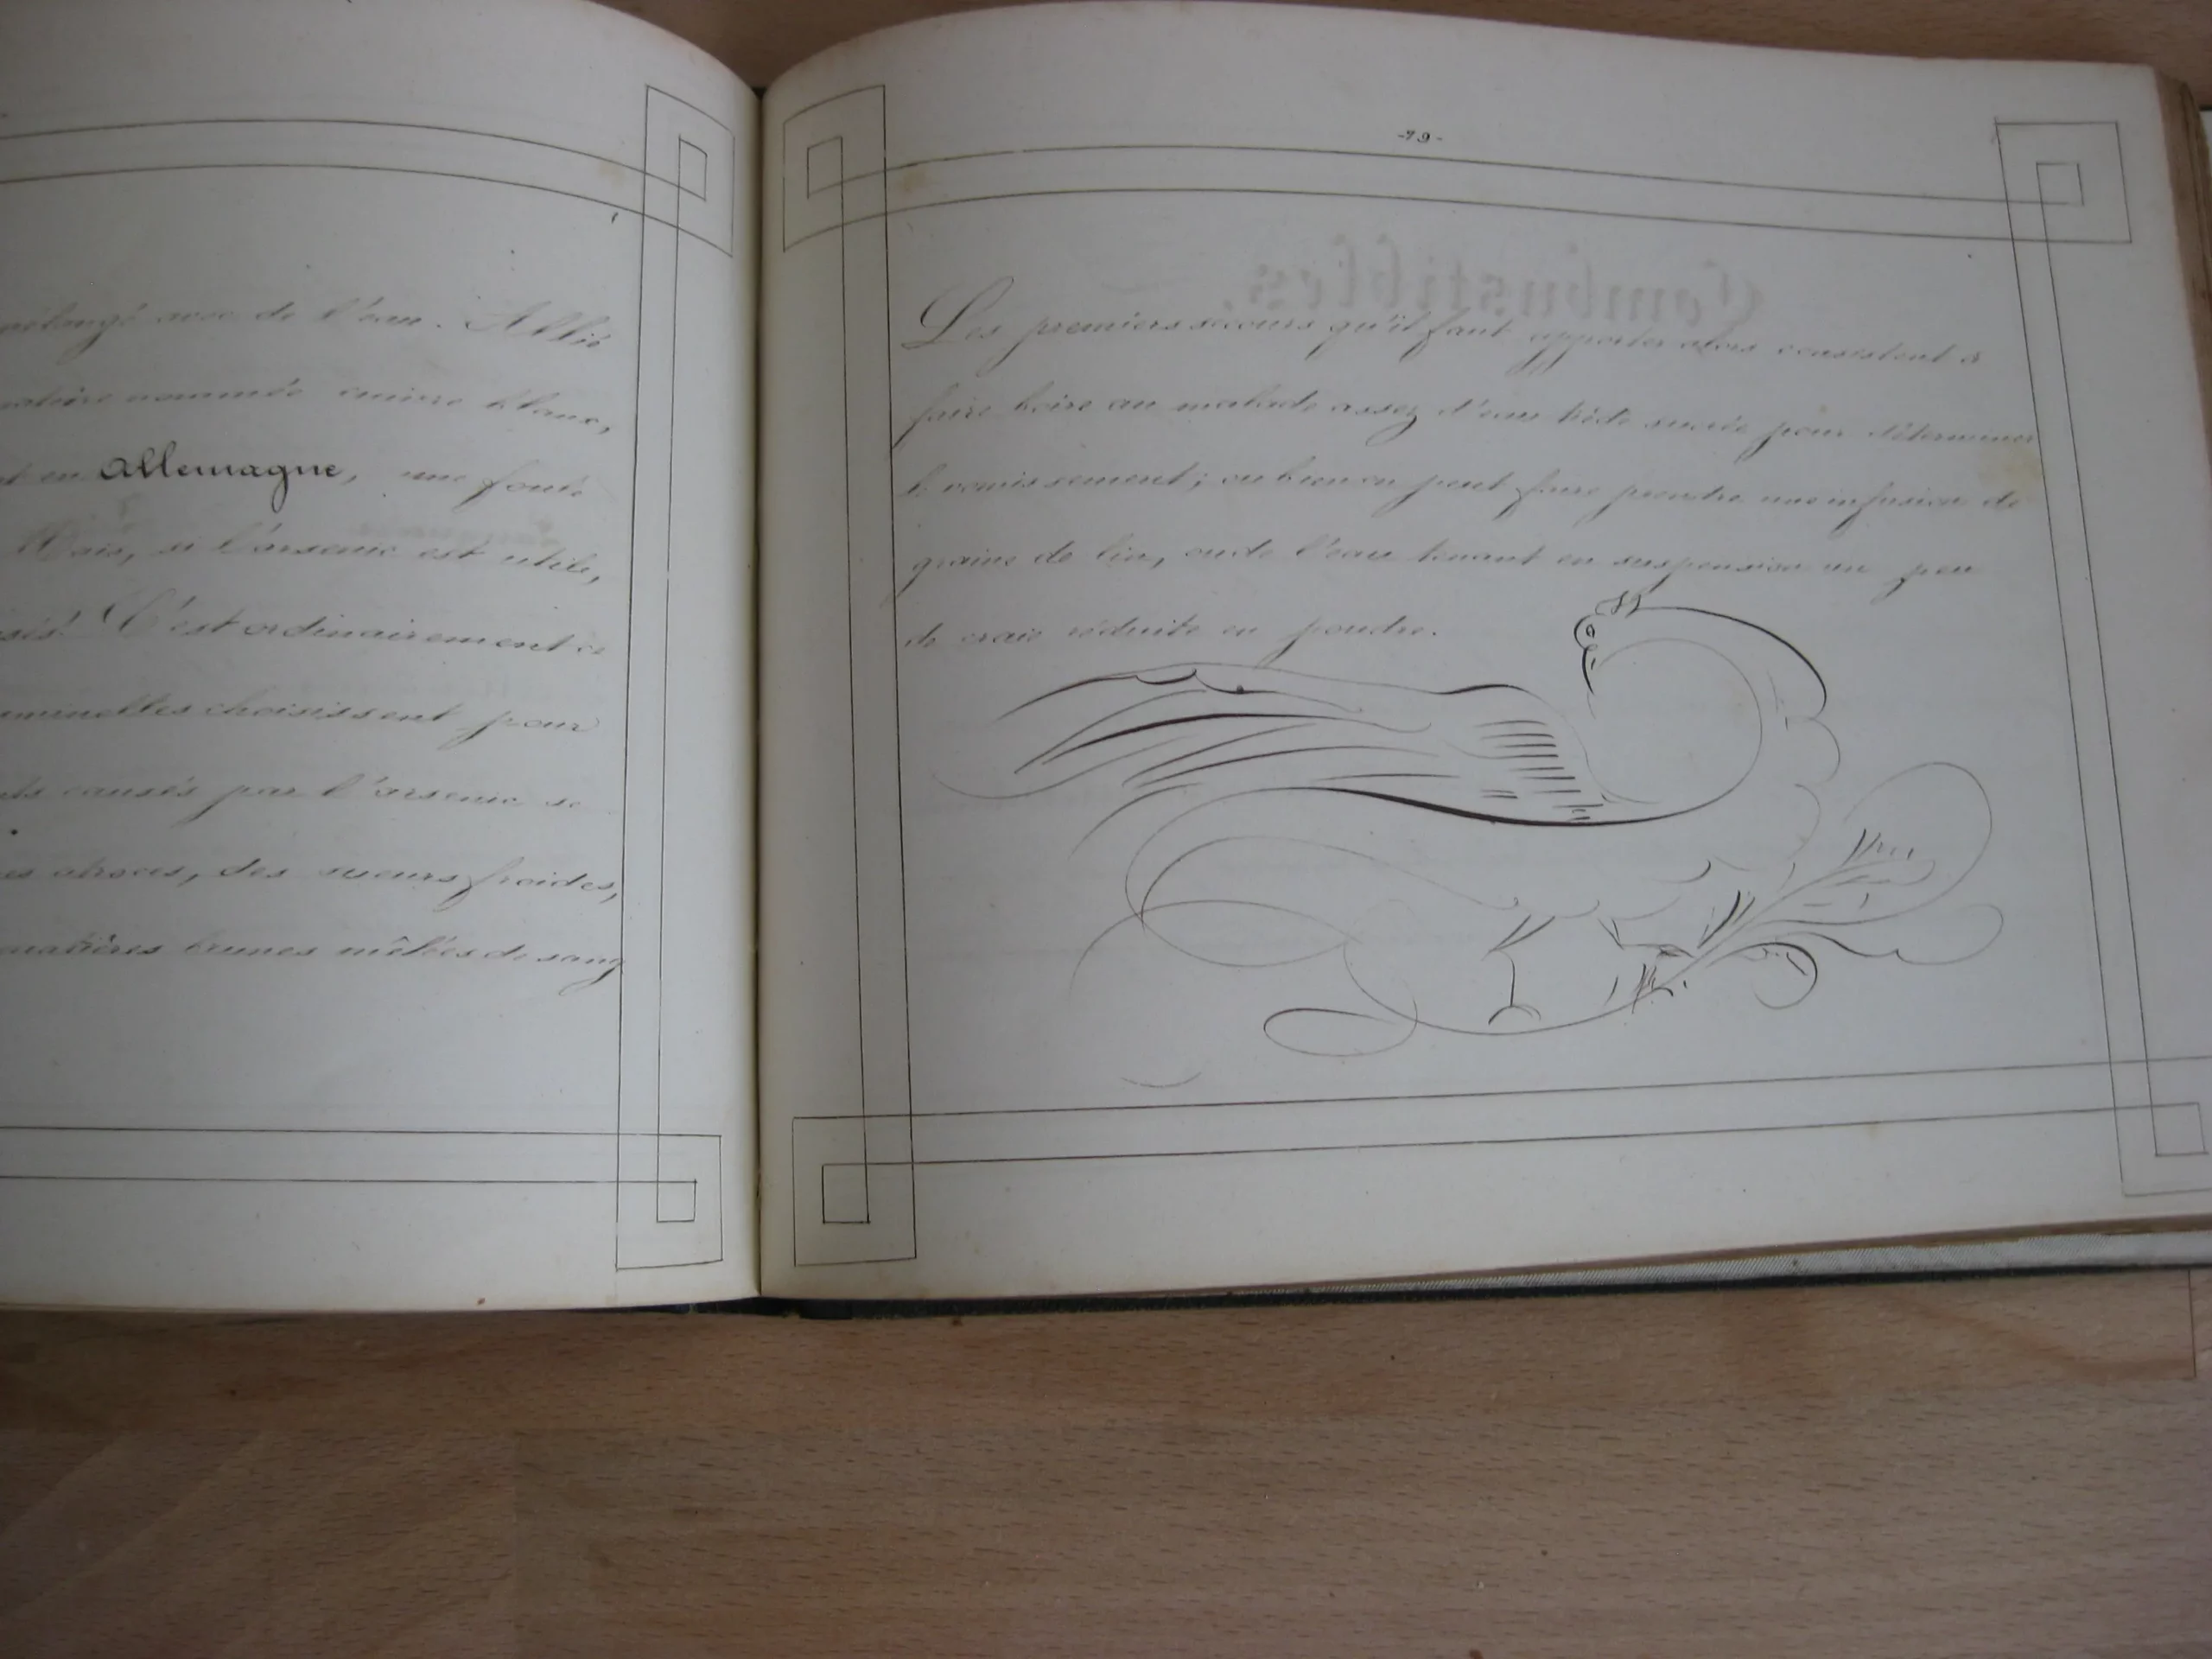 mélangé avec de l'eau. Allié
matière nommée cuivre blanc,
en Allemagne, une foule
Mais, si l'arsenic est utile,
C'est ordinairement ce
criminelles choisissent pour
causés par l'arsenic se
atroces, des sueurs froides,
matières brunes mêlées de sang
-79-
Combustibles.
Les premiers secours qu'il faut apporter alors consistent à
faire boire au malade assez d'eau tiède sucrée pour déterminer
le vomissement; ou bien on peut faire prendre une infusion de
graine de lin, ou de l'eau tenant en suspension un peu
de craie réduite en poudre.